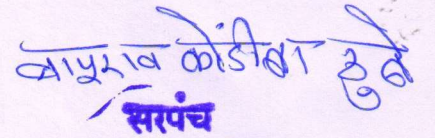 बापूराव कोंडीबा हुबे
सरपंच